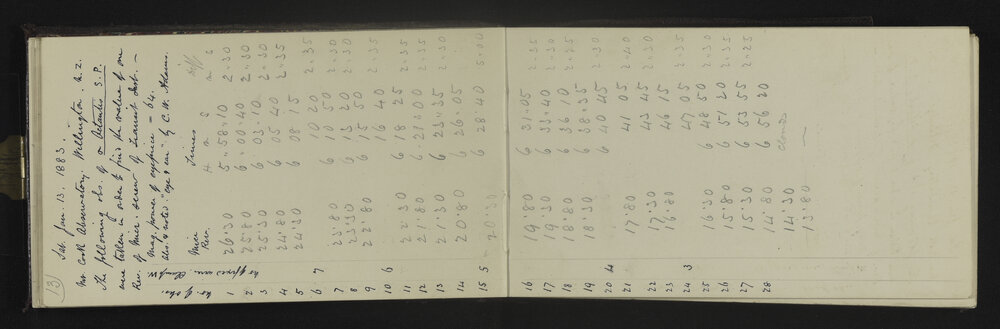 13
Sat. Jan. 13. 1883.
Mr. Cook's Observatory Wellington. N.Z.
The following obs. of α Octantis S.P.
were taken in order to find the value of one
Rev. of Micr. screw of Transit Inst. —
Mag. power of eyepiece = 64.
obs'd & noted "eye & ear" by C.W. Adams.
No. of obs. Micr Rev. Times diff
H m s m s
1 26.30 5.58.10 2.30
2 25.80 6.00.40 2.30
3 25.30 6 03.10 2.30
4 24.80 6 05 40 2.35
5 24.30 6 08 15
6 7 10 20 2.35
7 23.80 6 10 50 2.30
8 23.30 6 13 20 2.30
9 22.80 6 15 50
10 6 16 40 2.35
11 22.30 6 18 25 2.35
12 21.80 6.21.00 2.35
13 21.30 6 23.35 2.30
14 20.80 6 26.05
15 5 20.30 6 28.40 5.00
16 19.80 6 31.05 2.35
17 19.30 6 33.40 2.30
18 18.80 6 36 10 2.25
19 18.30 6 38.35
20 4 6 40 45
21 17.80 41 05 2.40
22 17.30 43 45 2.30
23 16.80 46 15
24 3 47 05 2.35
25 16.30 6 48 50 2.30
26 15.80 6 51 20 2.35
27 15.30 6 53 55 2.25
28 14.80 6 56 20
14.30 clouds
13.80 —